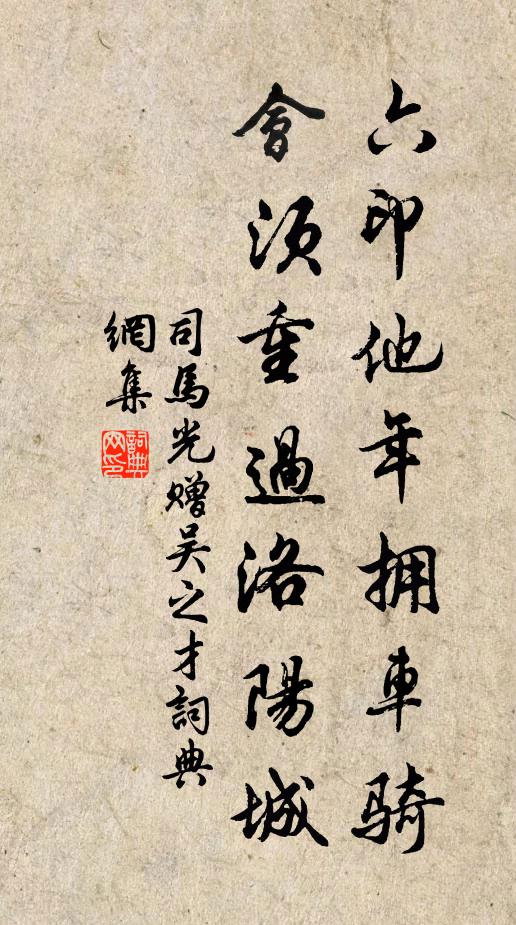 六印他年拥車騎
會須重過洛陽城
司馬光贈吴之才詞典
網集
詞典網印